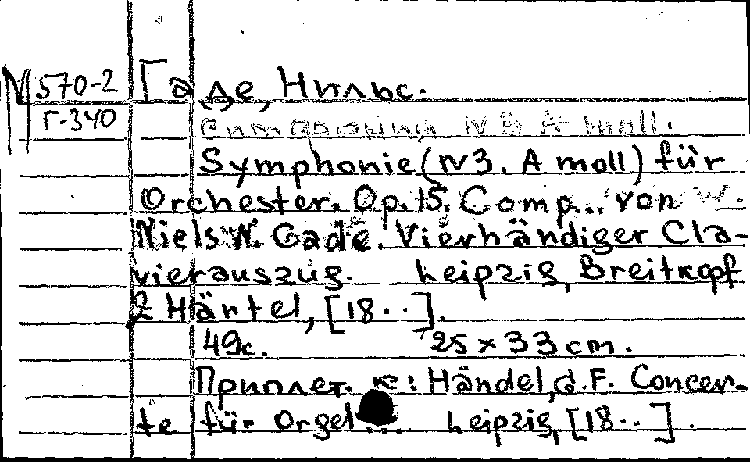 М 570-2
Г-340
Гаде, Нильс.
Симфония № 3 A moll.
Symphonie (№3. A moll) für
Orchester. Op. 15. Comp. von
Niels W. Gade. Vierhändiger Cla-
vierauszug. Leipzig, Breitkopf
& Häntel, [18..].
49с. 25 × 33 cm.
Приплет. к: Händel, G.F. Concer-
te für Orgel... Leipzig, [18..].